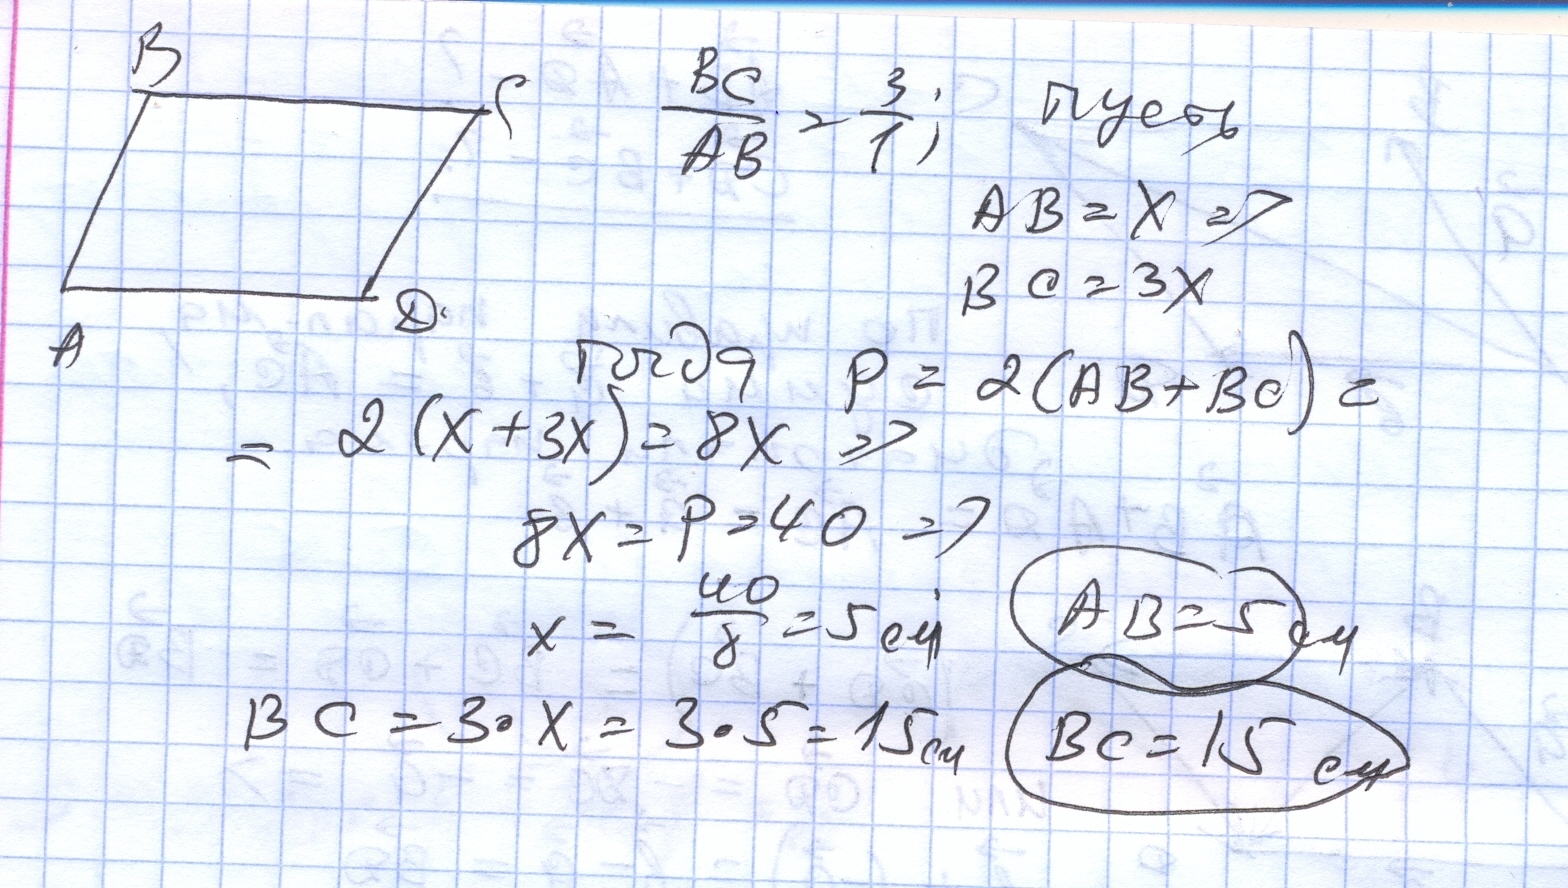 B
C
BC/AB = 3/1; Пусть
AB = X =>
BC = 3X
A
D
Тогда P = 2(AB+BC) =
= 2(X+3X) = 8X =>
8X = P = 40 =>
x = 40/8 = 5 см; AB = 5 см
BC = 3•X = 3•5 = 15 см BC = 15 см